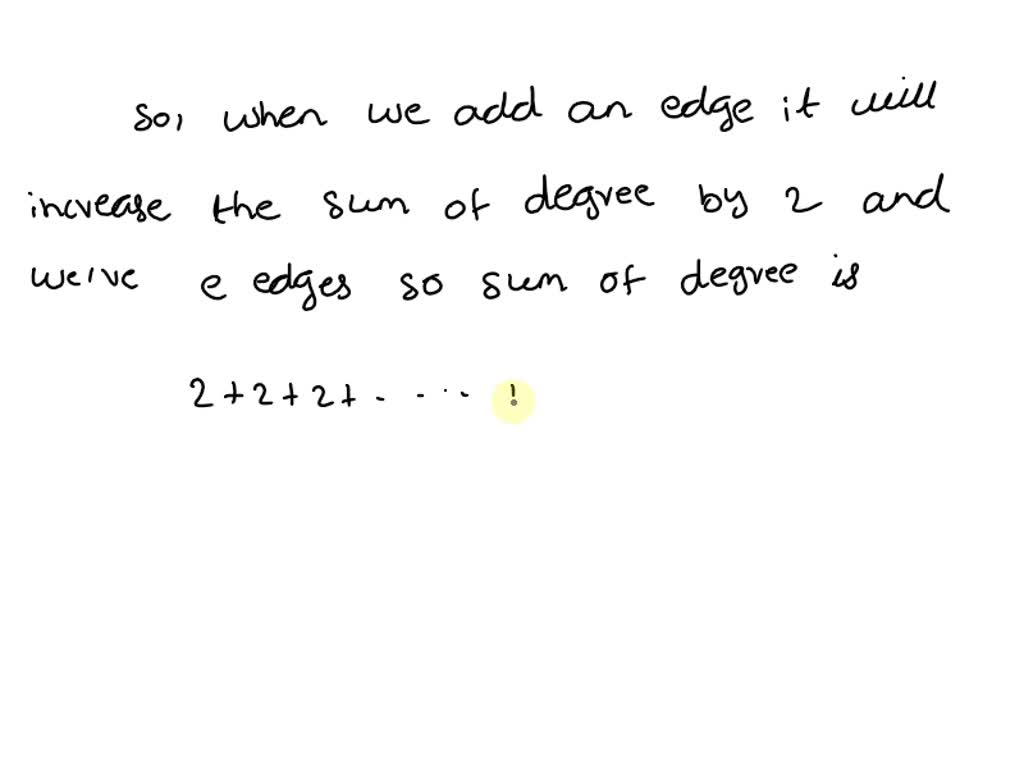 so, when we add an edge it will
increase the sum of degree by 2 and
we've e edges so sum of degree is
2+2+2+. . . .